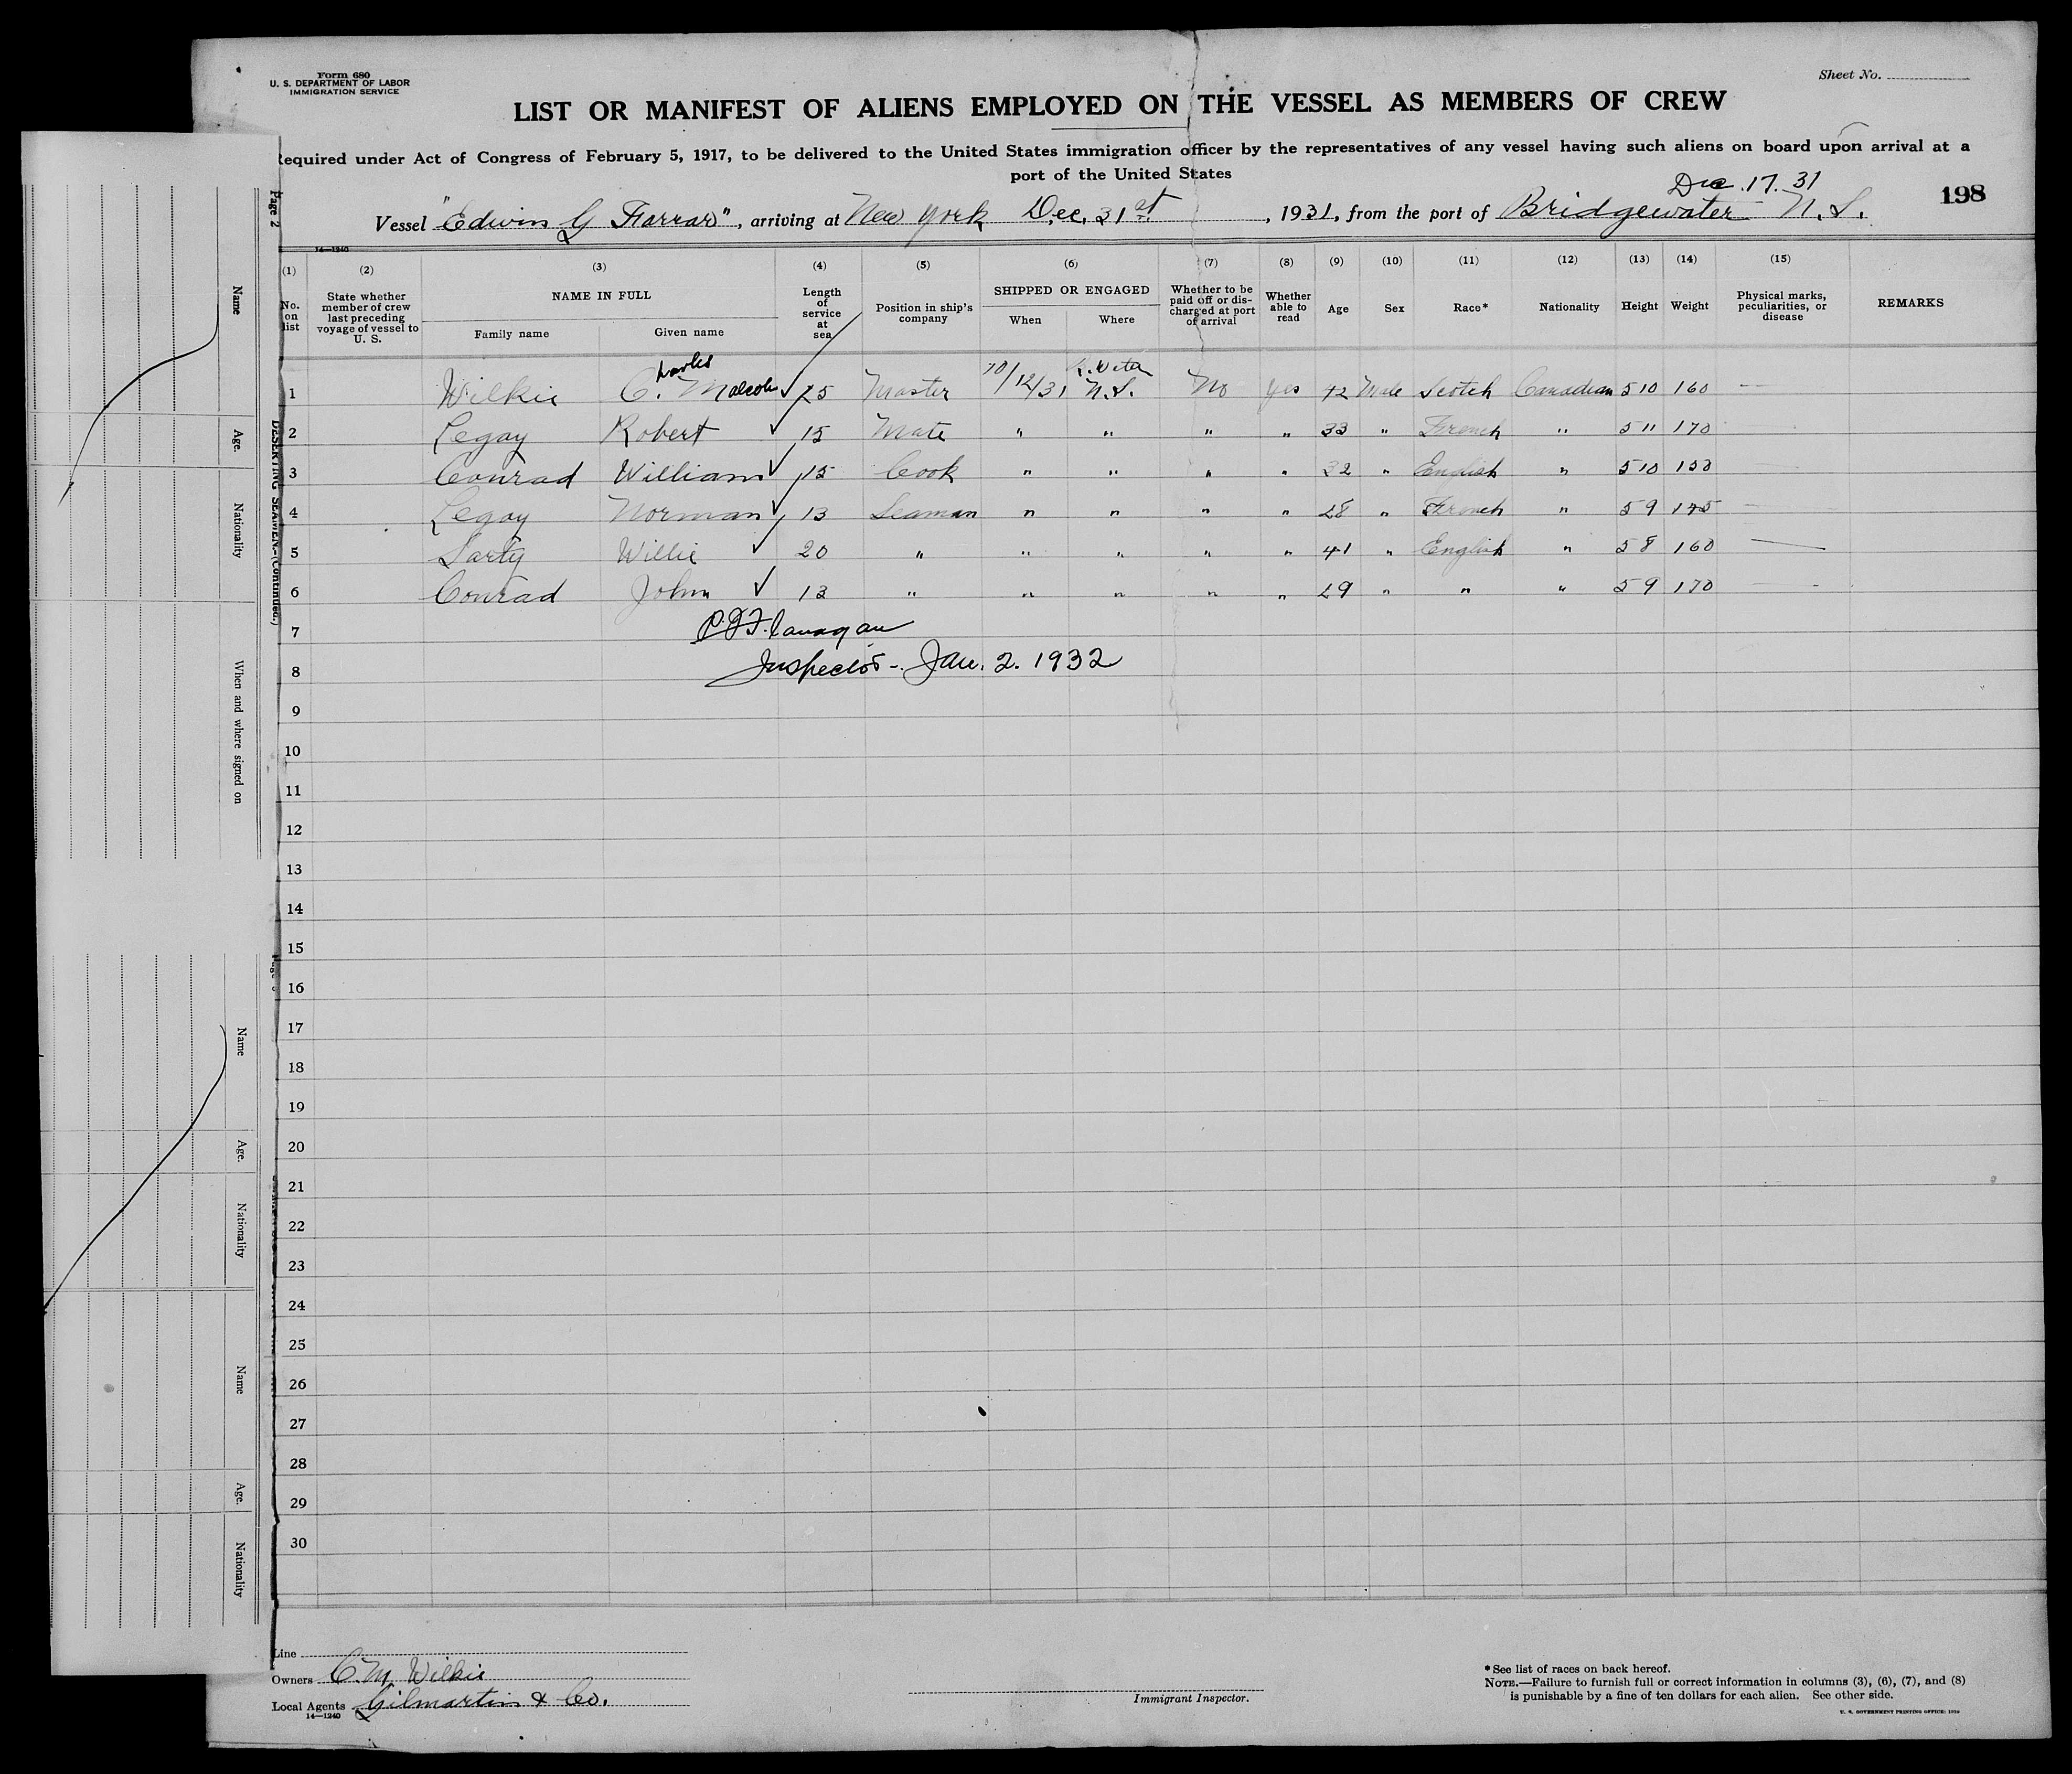 Form 680
U. S. DEPARTMENT OF LABOR
IMMIGRATION SERVICE
Sheet No.
LIST OR MANIFEST OF ALIENS EMPLOYED ON THE VESSEL AS MEMBERS OF CREW
Required under Act of Congress of February 5, 1917, to be delivered to the United States immigration officer by the representatives of any vessel having such aliens on board upon arrival at a
port of the United States
Dec. 17. 31
198
Vessel "Edwin G Farrar", arriving at New York Dec. 31st, 1931, from the port of Bridgewater N.S.
14—1240
(1) (2) (3) (4) (5) (6) (7) (8) (9) (10) (11) (12) (13) (14) (15)
No. on list State whether member of crew last preceding voyage of vessel to U. S. NAME IN FULL Family name Given name Length of service at sea Position in ship's company SHIPPED OR ENGAGED When Where Whether to be paid off or discharged at port of arrival Whether able to read Age Sex Race* Nationality Height Weight Physical marks, peculiarities, or disease REMARKS
1 Wilkie C. harles Malcolm 25 Master /12/31 N.S. No Yes 42 Male Scotch Canadian 5 10 160 —
2 Legay Robert 15 Mate " " " " 33 " French " 5 11 170
3 Conrad William 15 Cook " " " " 32 " English " 5 10 150
4 Legay Norman 13 Seaman " " " " 28 " French " 5 9 175 —
5 Sarty Willie 20 " " " " " 41 " English " 5 8 160 —
6 Conrad John 13 " " " " " 29 " " " 5 9 170 —
7 P.J. Flanagan
8 Inspector - Jan. 2. 1932
9
10
11
12
13
14
15
16
17
18
19
20
21
22
23
24
25
26
27
28
29
30
Line
Owners C.M. Wilkie
Local Agents Gilmartin & Co.
14—1240
Immigrant Inspector.
*See list of races on back hereof.
NOTE.—Failure to furnish full or correct information in columns (3), (6), (7), and (8)
is punishable by a fine of ten dollars for each alien. See other side.
Page 2
DESERTING SEAMEN—(Continued.)
Name
Age.
Nationality
When and where signed on
Name
Age.
Nationality
Name
Age.
Nationality